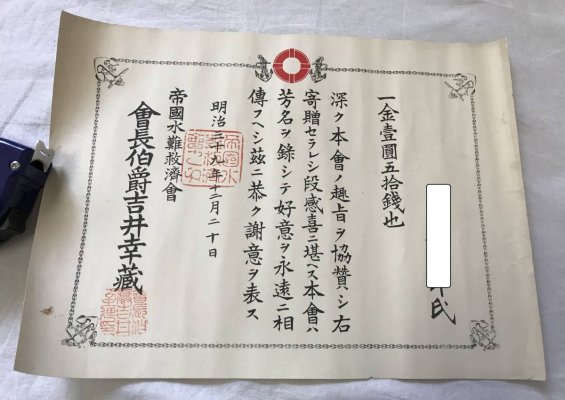 氏
一金壹圓五拾錢也
深ク本會ノ趣旨ヲ協賛シ右
寄贈セラレシ段感喜ニ堪ヘス本會ハ
芳名ヲ錄シテ好意ヲ永遠ニ相
傳フヘシ茲ニ恭ク謝意ヲ表ス
明治三十九年十二月二十日
帝國水難救濟會
會長伯爵吉井幸藏